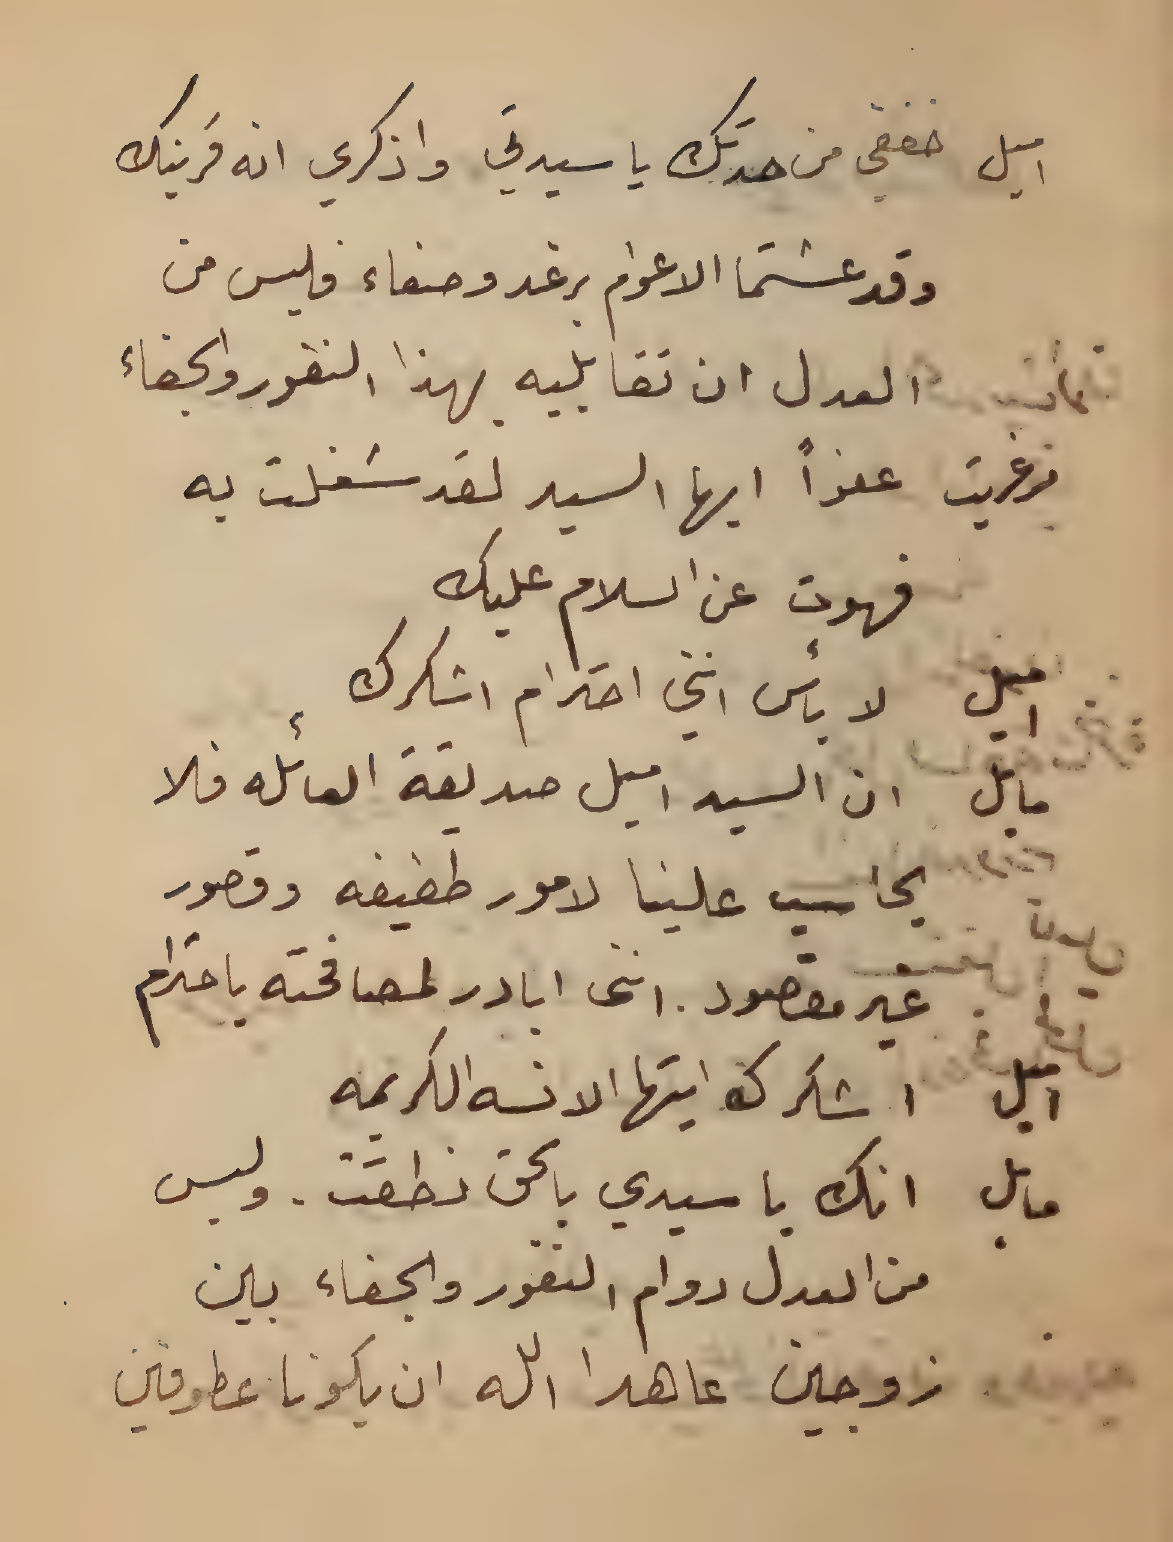 اميل خففي من حدتك يا سيدتي واذكري انه قرينك
وقد عشتما الاعوام برغد وصفاء فليس من
العدل ان تقابليه بهذا النفور والجفاء
مرغريت عفواً ايها السيد لقد شغلت به
فهوت عن السلام عليك
اميل لا بأس انني احترام اشكرك
مابل ان السيد اميل صديقة العائله فلا
يحاسب علينا لامور طفيفه وقصور
غير مقصود. انني ابادر لمصافحته باحترام
اميل اشكرك ايتها الانسه الكريمه
مابل انك يا سيدي بالحق نطقت. وليس
من العدل دوام النفور والجفاء بين
زوجين عاهدا الله ان يكونا عطوفين